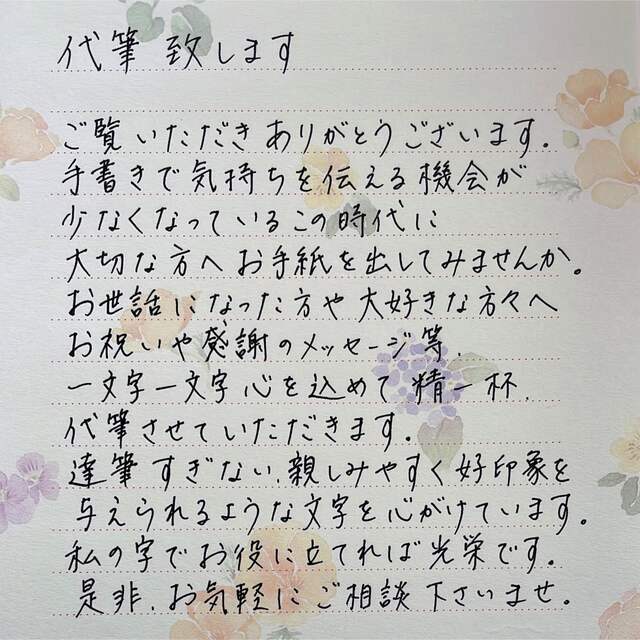 代筆致します
ご覧いただきありがとうございます.
手書きで気持ちを伝える機会が
少なくなっているこの時代に
大切な方へお手紙を出してみませんか。
お世話になった方や大好きな方々へ
お祝いや感謝のメッセージ等、
一文字一文字心を込めて精一杯、
代筆させていただきます.
達筆すぎない、親しみやすく好印象を
与えられるような文字を心がけています。
私の字でお役に立てれば光栄です.
是非、お気軽にご相談下さいませ。